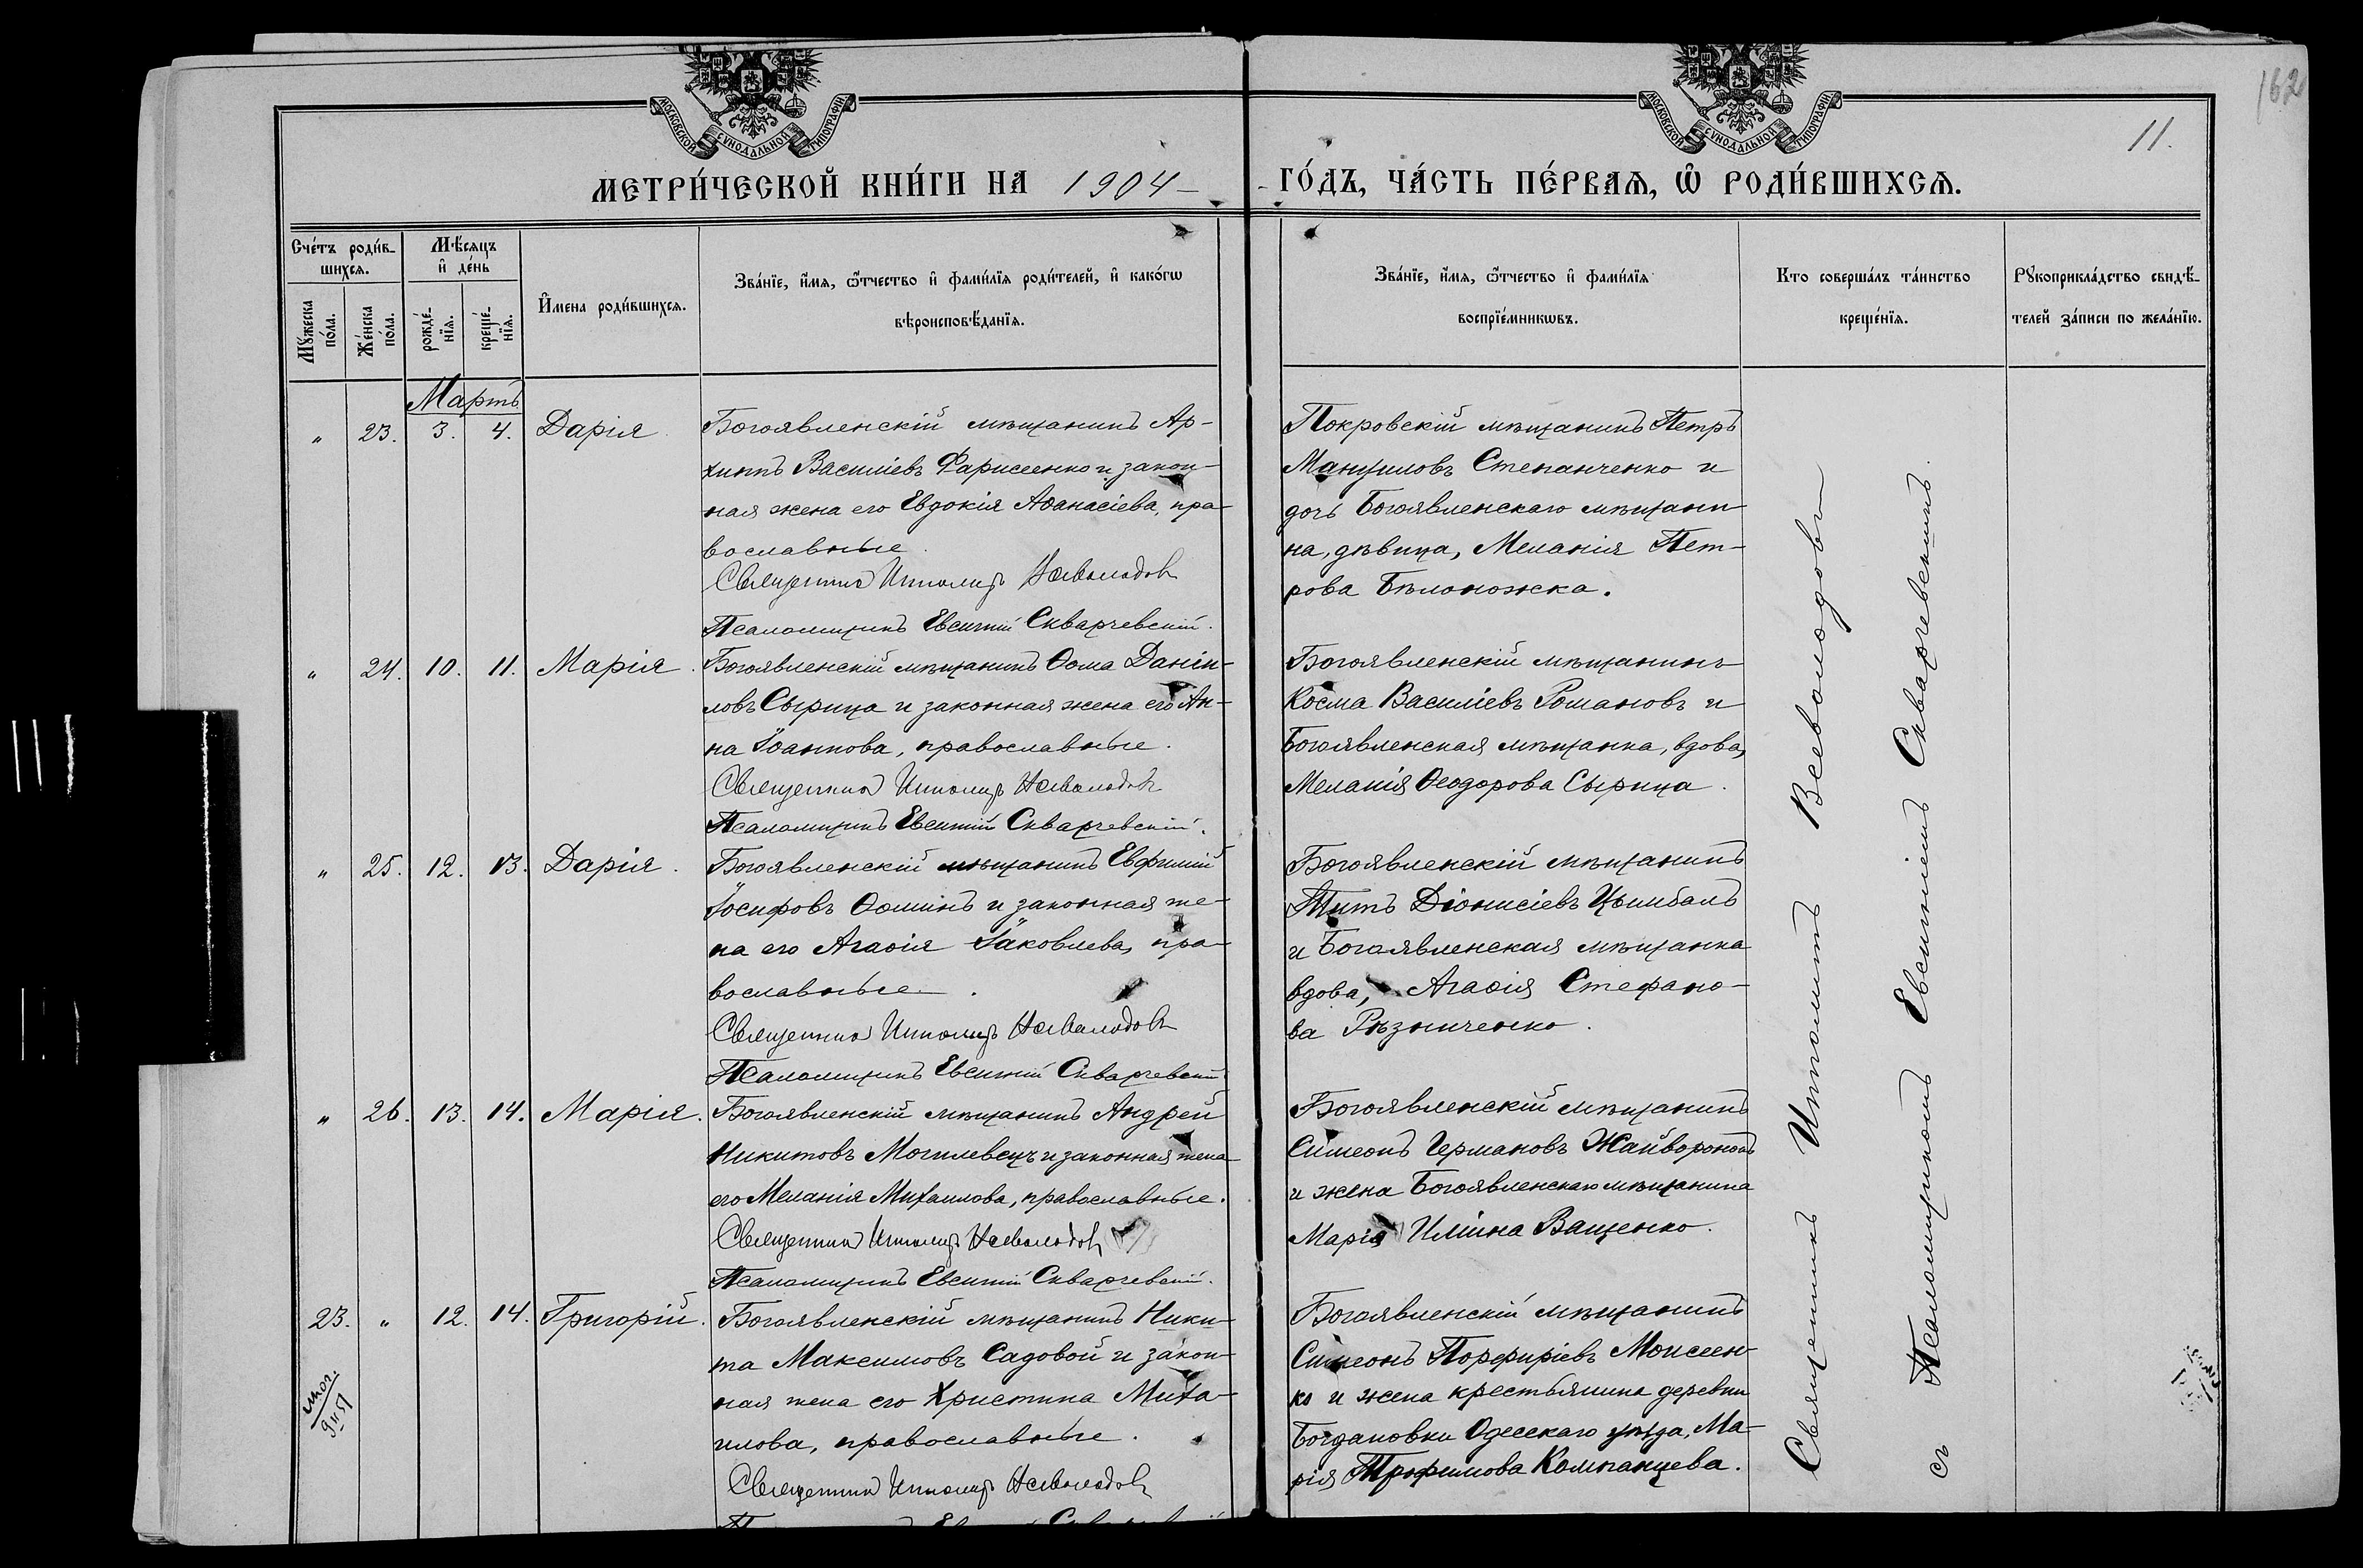 МОСКОВСКОЙ СУНОДАЛЬНОЙ ТИПОГРАФІИ
МОСКОВСКОЙ СУНОДАЛЬНОЙ ТИПОГРАФІИ
162
11.
МЕТРИ́ЧЕСКОЙ КНИ́ГИ НА 1904 -
- ГО́ДЪ, ЧА́СТЬ ПЕ́РВАѦ, Ѽ РОДИ́ВШИХСѦ.
Сче́тъ роди́в-
шихсѧ.
Мѣ́сѧцъ
и҆ де́нь
Мꙋ́жеска
по́ла.
Же́нска
по́ла.
рожде́-
нїѧ.
креще́-
нїѧ.
И҆мена роди́вшихсѧ.
Зва́нїе, и҆́мѧ, ѻ҆́тчество и҆ фами́лїѧ роди́телей, и҆ како́гѡ
вѣроисповѣ́данїѧ.
Зва́нїе, и҆́мѧ, ѻ҆́тчество и҆ фами́лїѧ
воспрїе́мникѡвъ.
Кто соверша́лъ та́инство
креще́нїѧ.
Рꙋкоприкла́дство свидѣ́-
телей за́писи по жела́нїю.
Мартъ
" 23. 3. 4. Дарія
Богоявленскій мѣщанинъ Ар-
хиппъ Василіевъ Фарисеенко и закон-
ная жена его Евдокія Аѳанасіева, пра-
вославные.
Священникъ Ипполитъ Всеволодовъ
Псаломщикъ Евсигній Скварчевскій.
Покровскій мѣщанинъ Петръ
Мануиловъ Степанченко и
дочь Богоявленскаго мѣщани-
на, дѣвица, Меланія Пет-
рова Бѣлоножка.
" 24. 10. 11. Марія.
Богоявленскій мѣщанинъ Ѳома Даніи-
ловъ Сырица и законная жена его Ан-
на Іоаннова, православные.
Священникъ Ипполитъ Всеволодовъ
Псаломщикъ Евсигній Скварчевскій.
Богоявленскій мѣщанинъ
Косма Василіевъ Романовъ и
Богоявленская мѣщанка, вдова,
Меланія Ѳеодорова Сырица.
" 25. 12. 13. Дарія.
Богоявленскій мѣщанинъ Евфимій
Іосифовъ Ѳоминъ и законная же-
на его Агаѳія Іаковлева, пра-
вославные.
Священникъ Ипполитъ Всеволодовъ
Псаломщикъ Евсигній Скварчевскій
Богоявленскій мѣщанинъ
Титъ Діонисіевъ Цымбалъ
и Богоявленская мѣщанка
вдова, Агаѳія Стефано-
ва Рѣзниченко.
" 26. 13. 14. Марія.
Богоявленскій мѣщанинъ Андрей
Никитовъ Могилевецъ и законная жена
его Меланія Михаилова, православные.
Священникъ Ипполитъ Всеволодовъ
Псаломщикъ Евсигній Скварчевскій.
Богоявленскій мѣщанинъ
Симеонъ Германовъ Жайворонокъ
и жена Богоявленскаго мѣщанина
Марія Иліина Ващенко.
23. " 12. 14. Григорій.
Богоявленскій мѣщанинъ Ники-
та Максимовъ Садовой и закон-
ная жена его Христина Миха-
илова, православные.
Священникъ Ипполитъ Всеволодовъ
Богоявленскій мѣщанинъ
Симеонъ Порфиріевъ Моисеен-
ко и жена крестьянина деревни
Богдановки Одесскаго уѣзда, Ма-
рія Трофимова Компанцева.
Священникъ Ипполитъ Всеволодовъ
съ Псаломщикомъ Евсигніемъ Скварчевскимъ.